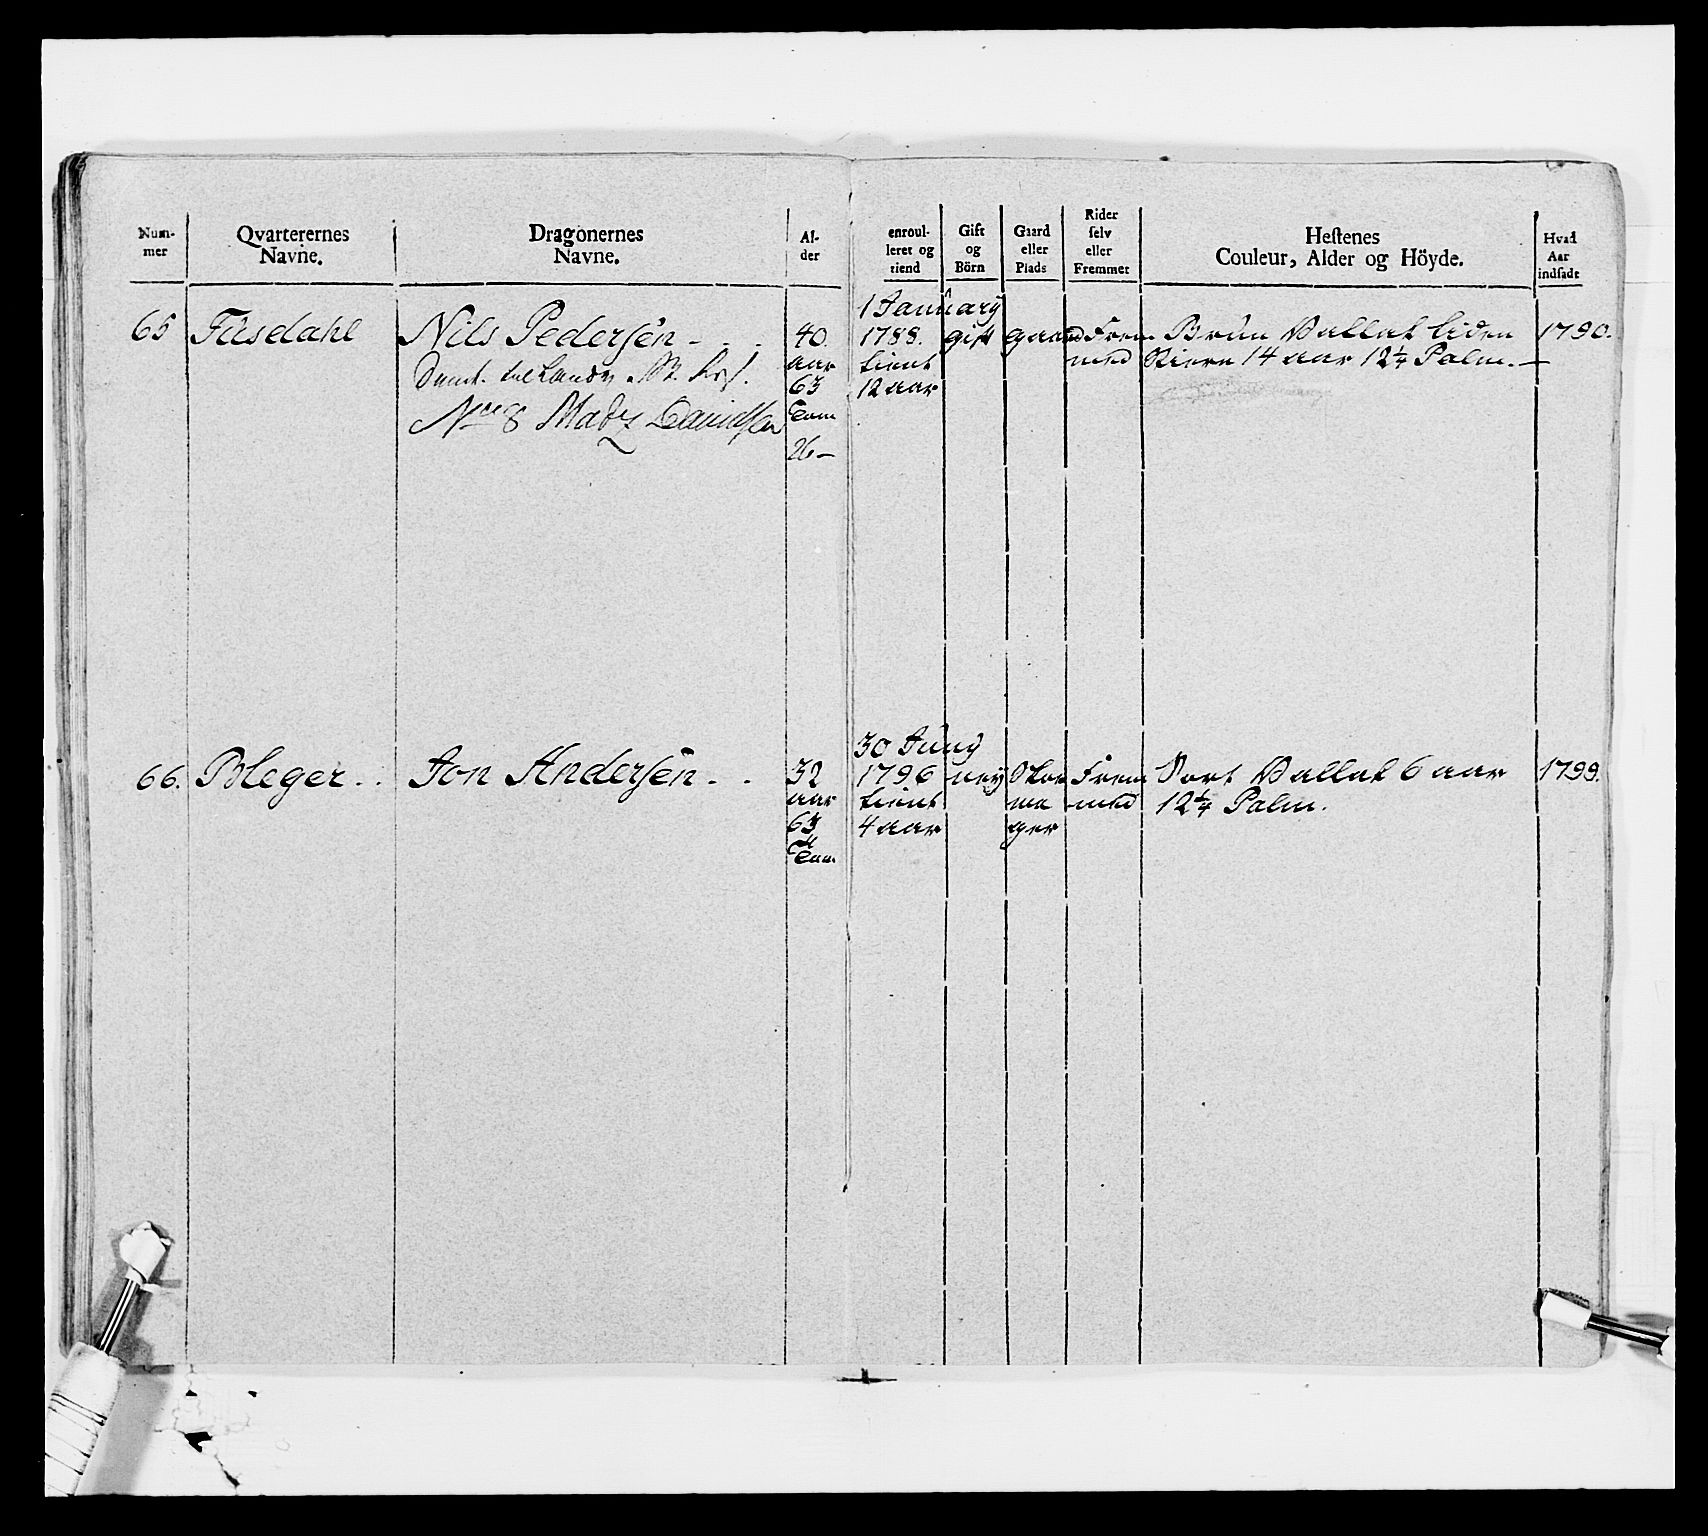 Num-
mer
Qvarterernes
Navne.
Dragonernes
Navne.
Al-
der
enroul-
leret og
tiend
Gift
og
Börn
Gaard
eller
Plads
Rider
selv
eller
Fremmet
Hestenes
Couleur, Alder og Höyde.
Hvad
Aar
indsadt
65
Fusdahl
Nils Pedersen
No 8 Madz Davidsen
40
aar
63
Tom
26
1 January
1788.
tient
12 aar
gift
gaard
Frem
med
Brun Vallak liden
Stiern 14 aar 12 1/4 Palm.
1790.
66.
Bleger
Jon Andersen
32
aar
63
Tom
30 Juny
1796
tient
4 aar
ney
Skoe
ma
ger
Frem
med
Sort Vallak 6 aar
12 1/4 Palm.
1799.